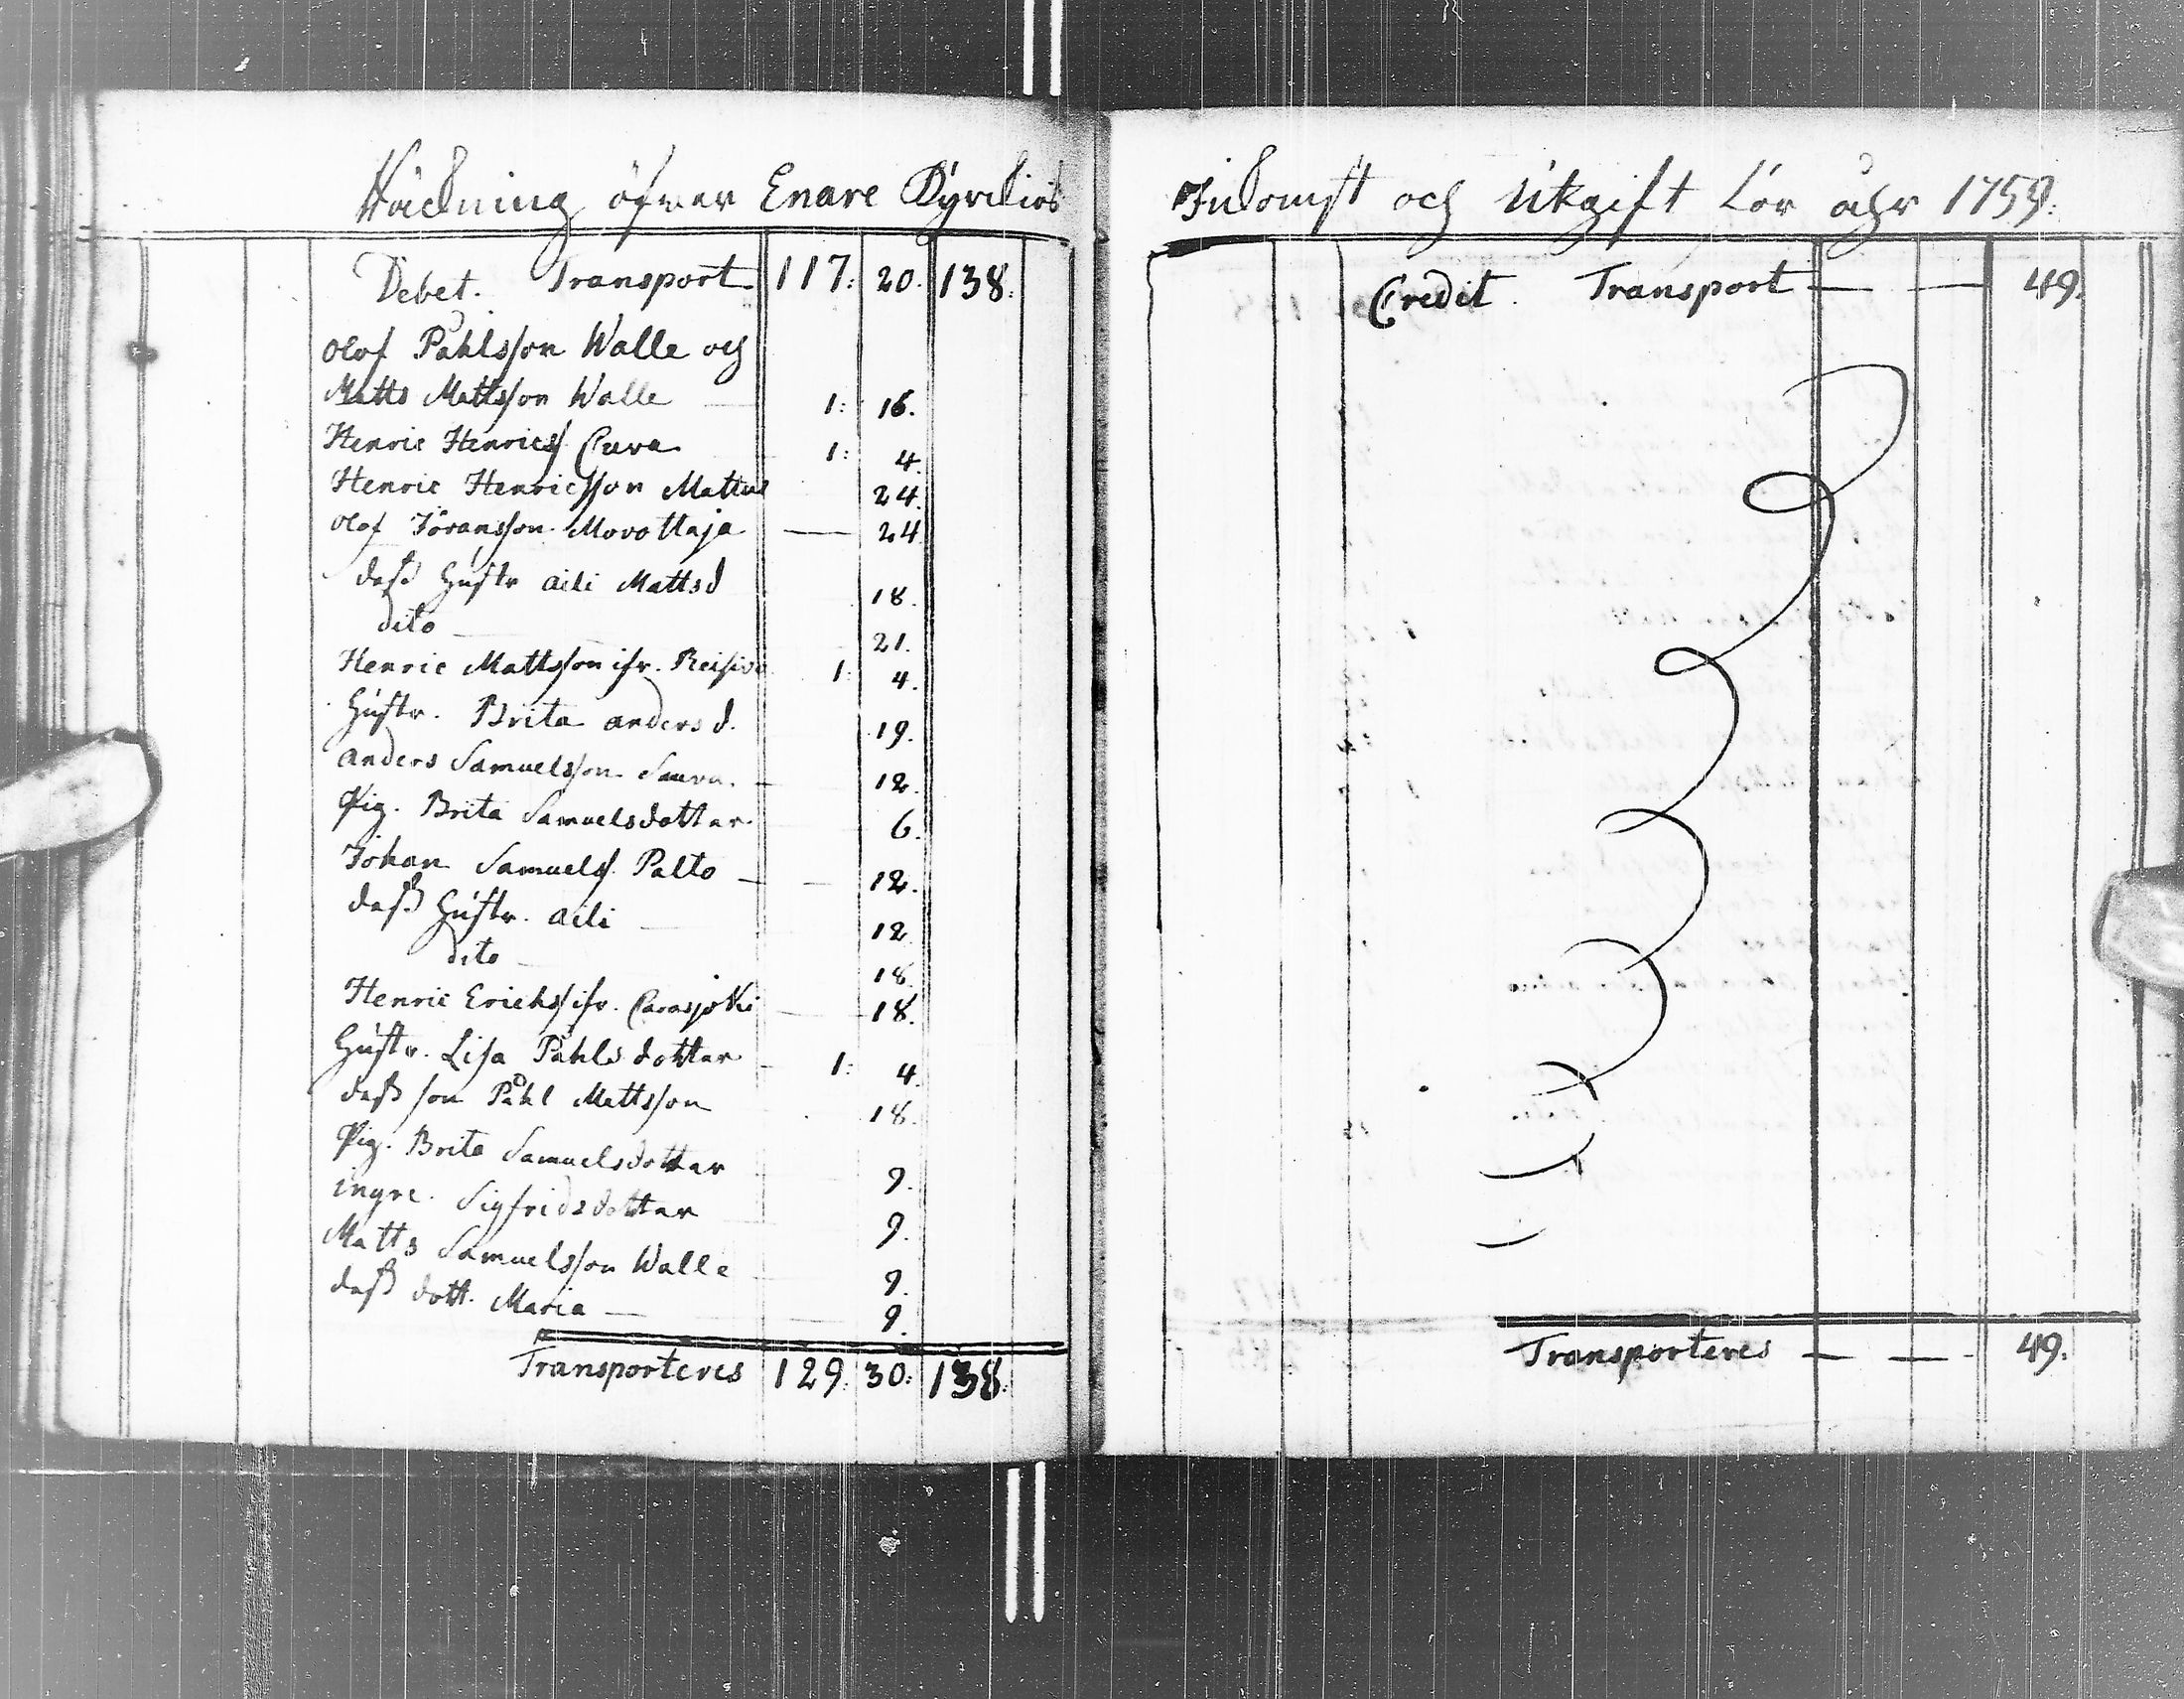 Räckning öfwer Enare Kyrckios
Debet. Transport 117: 20. 138:
Olof Påhlsson Walle och
Matts Mattsson Walle 1: 16.
Henric Henricss. Cuva 1: 4.
Henric Henricsson Mattus 24.
Olof Jöransson Movottaja — 24.
dess Hustr aili Mattsd 18.
dito 21.
Henric Mattsson ifr. 1: 4.
Hustr. Brita anders d. 19.
anders Samuelsson 12.
Pig. Brita Samuelsdotter 6.
Johan Samuelss. Palto — — 12.
dess Hustr. aili 12.
dito 18.
Henric Erickss. ifr. Carasjoki 18.
Hustr. Lisa Påhls dotter 1: 4.
dess son Påhl Mattsson 18.
Pig. Brita Samuelsdotter 9.
ingre. Sigfridsdotter 9.
Matts Samuelsson Walle 9.
dess dott. Maria — 9.
Transporteres 129: 30: 138:
Inkomst och Utgift för åhr 1759:
Credit. Transport — — 49.
Transporteres — — 49.